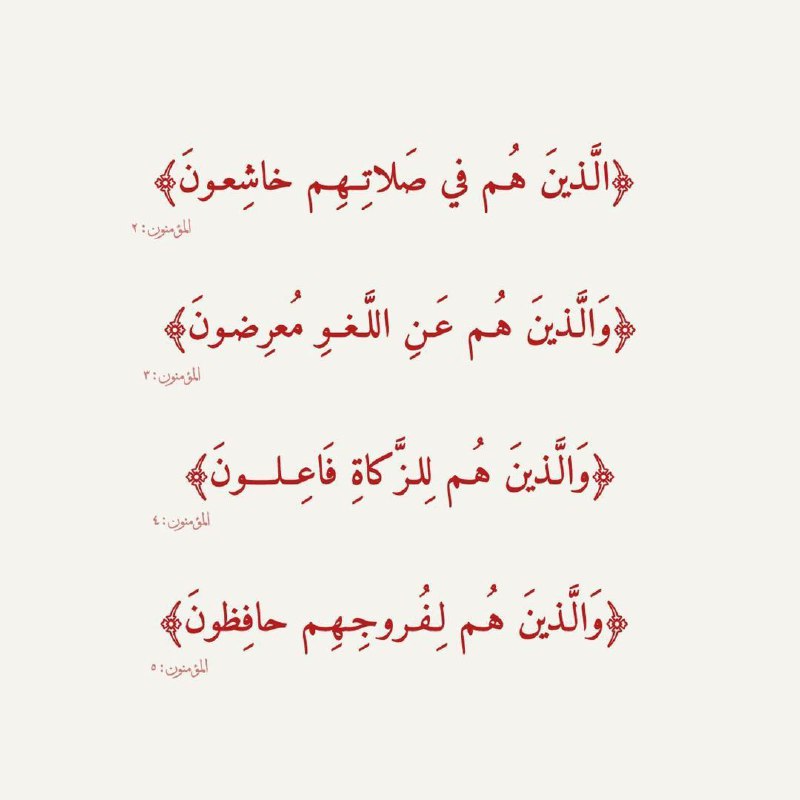 ﴿الَّذينَ هُم في صَلاتِهِم خاشِعونَ﴾
المؤمنون: ٢
﴿وَالَّذينَ هُم عَنِ اللَّغوِ مُعرِضونَ﴾
المؤمنون: ٣
﴿وَالَّذينَ هُم لِلزَّكاةِ فَاعِلونَ﴾
المؤمنون: ٤
﴿وَالَّذينَ هُم لِفُروجِهِم حافِظونَ﴾
المؤمنون: ٥